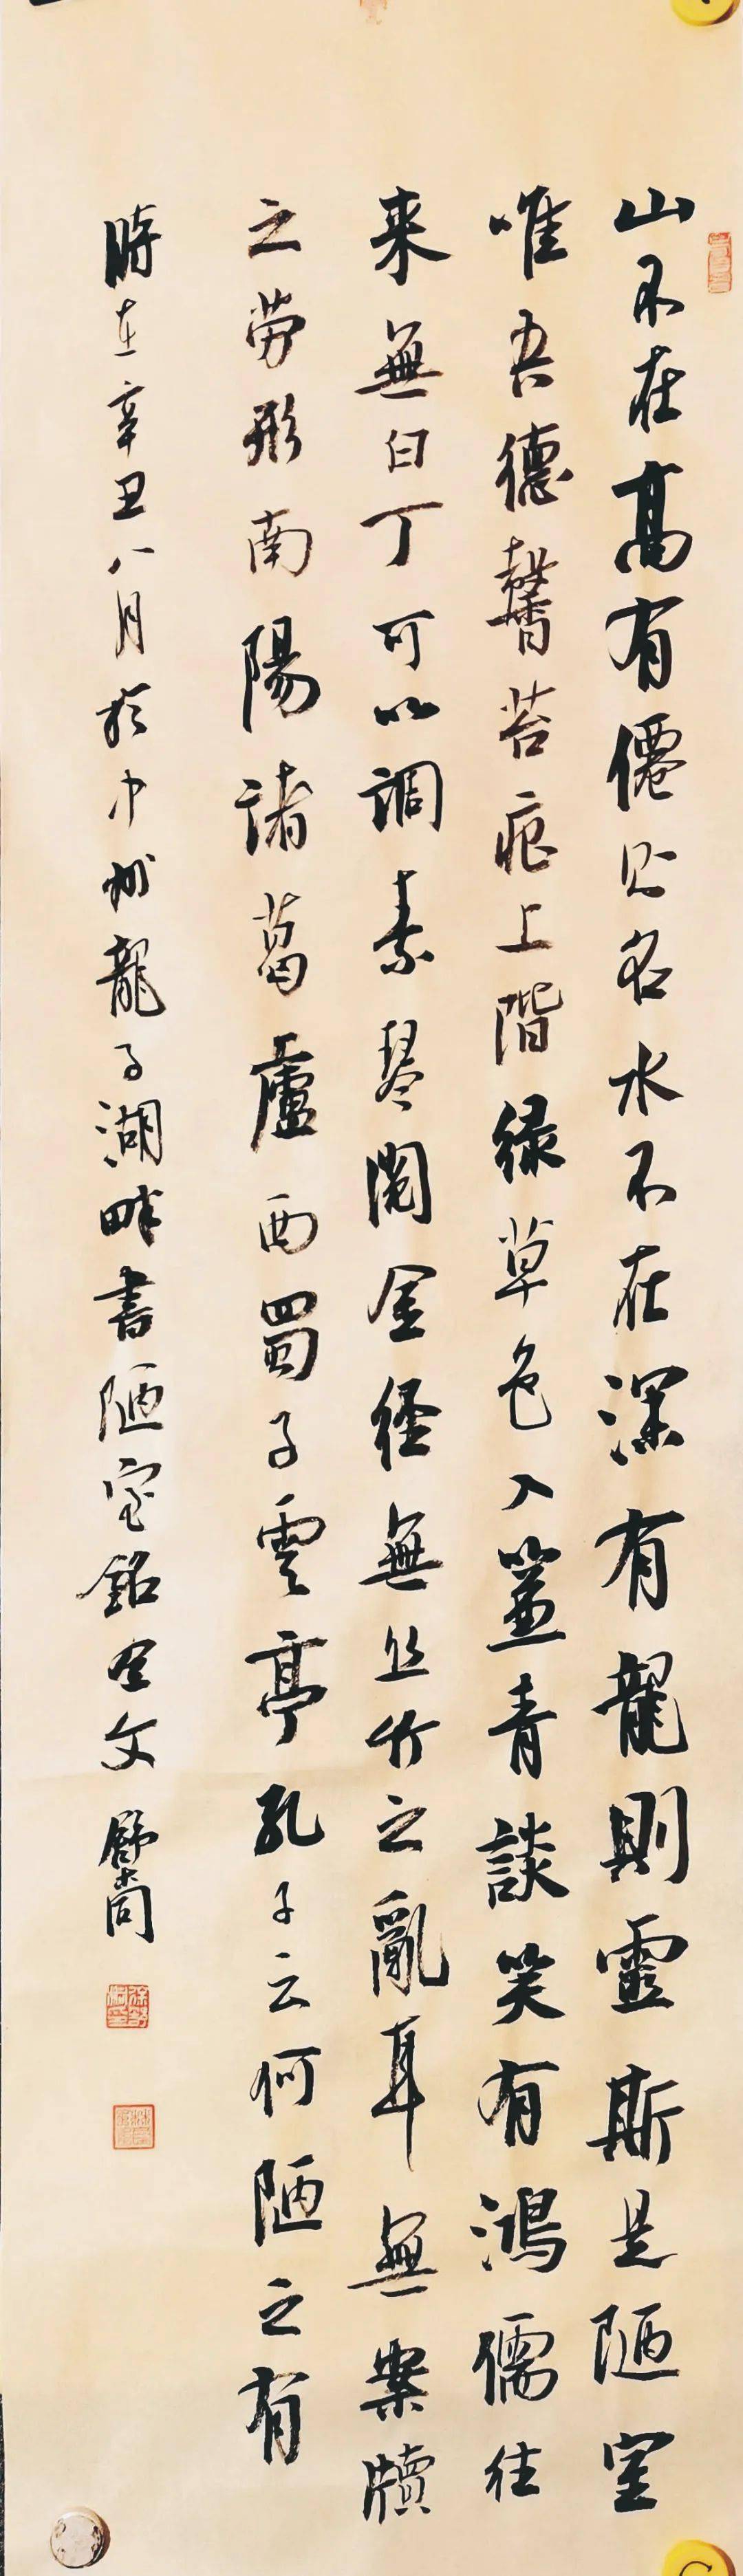 山不在高有僊則名水不在深有龍則靈斯是陋室
唯吾德馨苔痕上階緑草色入簾青談笑有鴻儒往
来無白丁可以調素琴閲金經無丝竹之亂耳無案牘
之劳形南陽诸葛廬西蜀子雲亭孔子云何陋之有
時在辛丑八月於中州龍子湖畔書陋室銘全文 舒尚